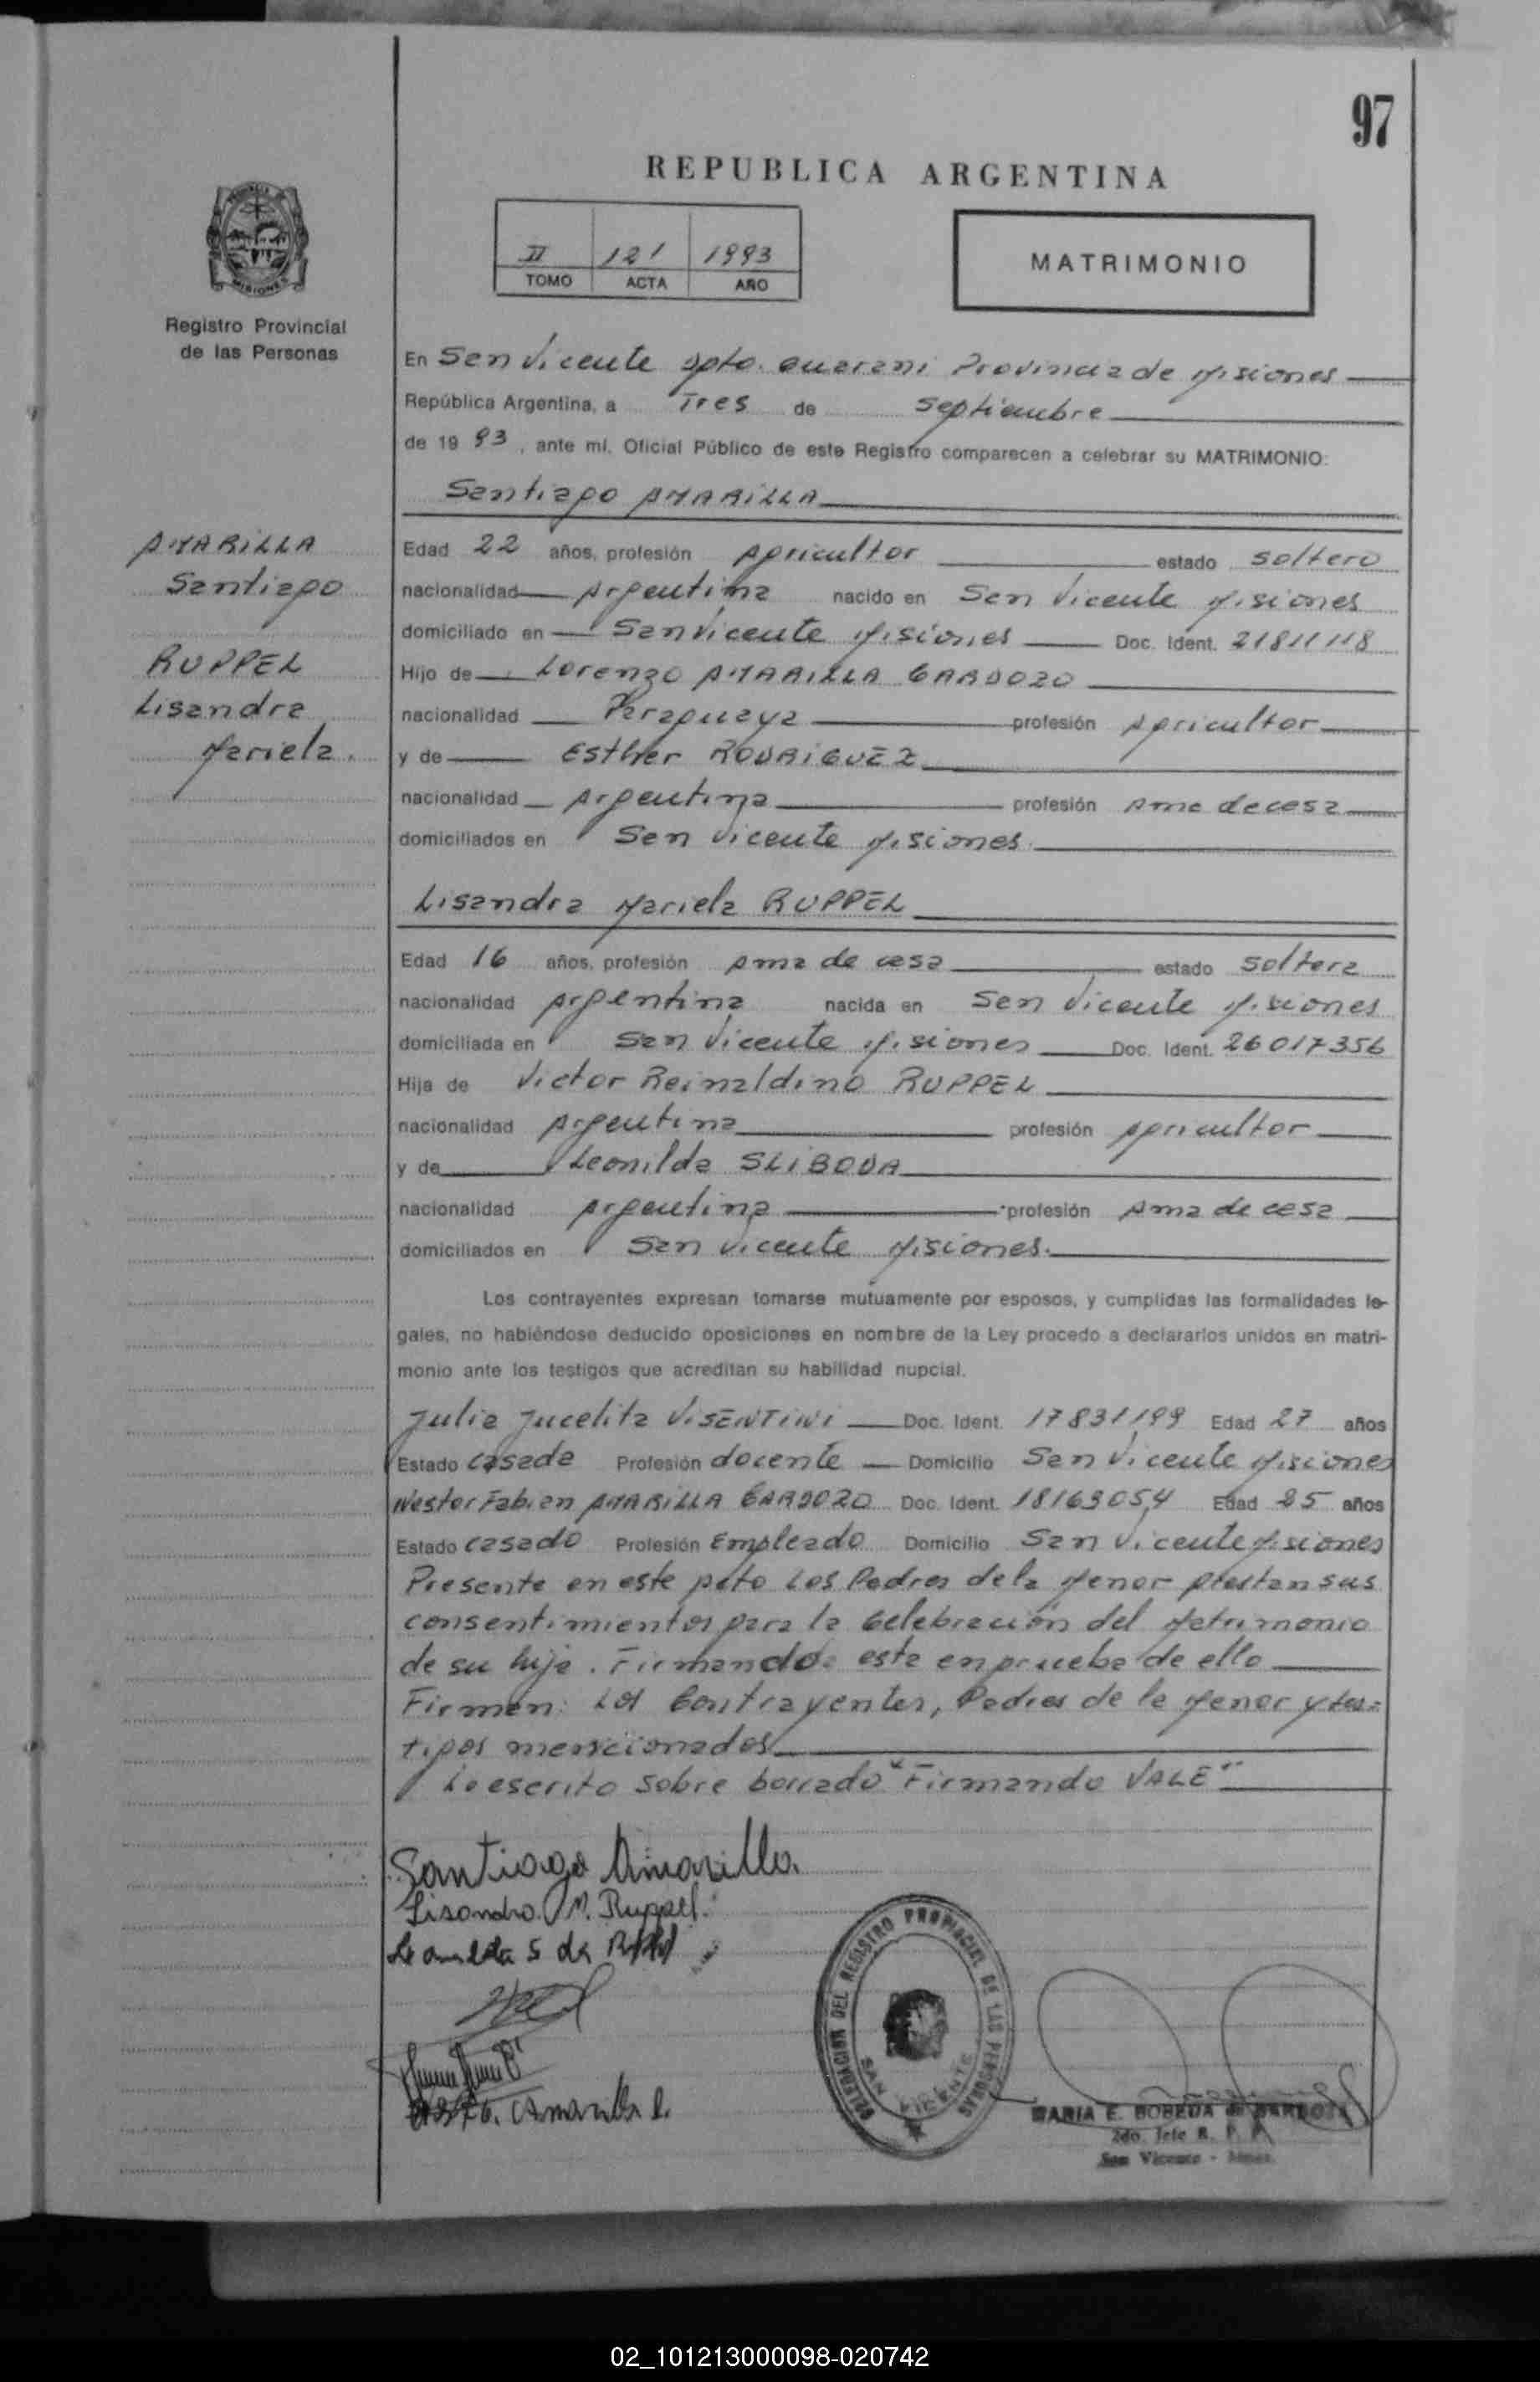 97
REPUBLICA ARGENTINA
II 121 1993
TOMO ACTA AÑO
MATRIMONIO
MISIONES
Registro Provincial
de las Personas
En San Vicente Dpto. Guarani Provincia de Misiones
República Argentina, a Tres de Septiembre
de 19 93, ante mí, Oficial Público de este Registro comparecen a celebrar su MATRIMONIO:
Santiago AMARILLA
AMARILLA
Santiago
RUPPEL
Lisandra
Mariela.
Edad 22 años, profesión Agricultor estado soltero
nacionalidad Argentina nacido en San Vicente Misiones
domiciliado en San Vicente Misiones Doc. Ident. 21811118
Hijo de Lorenzo AMARILLA CARDOZO
nacionalidad Paraguaya profesión Agricultor
y de Esther RODRIGUEZ
nacionalidad Argentina profesión Ama de casa
domiciliados en San Vicente Misiones.
Lisandra Mariela RUPPEL
Edad 16 años, profesión Ama de casa estado soltera
nacionalidad Argentina nacida en San Vicente Misiones
domiciliada en San Vicente Misiones Doc. Ident. 26017356
Hija de Victor Reinaldino RUPPEL
nacionalidad Argentina profesión Agricultor
y de Leonilda SLIBODA
nacionalidad Argentina profesión Ama de casa
domiciliados en San Vicente Misiones.
Los contrayentes expresan tomarse mutuamente por esposos, y cumplidas las formalidades le-
gales, no habiéndose deducido oposiciones en nombre de la Ley procedo a declararlos unidos en matri-
monio ante los testigos que acreditan su habilidad nupcial.
Julia Jucelita VISENTINI Doc. Ident. 17831199 Edad 27 años
Estado casada Profesión docente Domicilio San Vicente Misiones
Nestor Fabian AMARILLA CARDOZO Doc. Ident. 18163054 Edad 25 años
Estado casado Profesión Empleado Domicilio San Vicente Misiones
Presente en este Acto Los Padres de la Menor prestan sus
consentimientos para la Celebración del Matrimonio
de su hija. Firmando. esta en prueba de ello
Firman: Los Contrayentes, Padres de la Menor y tes=
tigos mencionados
Lo escrito sobre borrado "Firmando VALE"
Santiago Amarilla.
Lisandra M. Ruppel.
Leonilda S de Ruppel
Amarilla C.
DELEGACION DEL REGISTRO PROVINCIAL DE LAS PERSONAS
SAN VICENTE
MARIA E. BOBEDA de BARBOZA
2do. Jefe R. P. P.
San Vicente - Mnes.
02_101213000098-020742